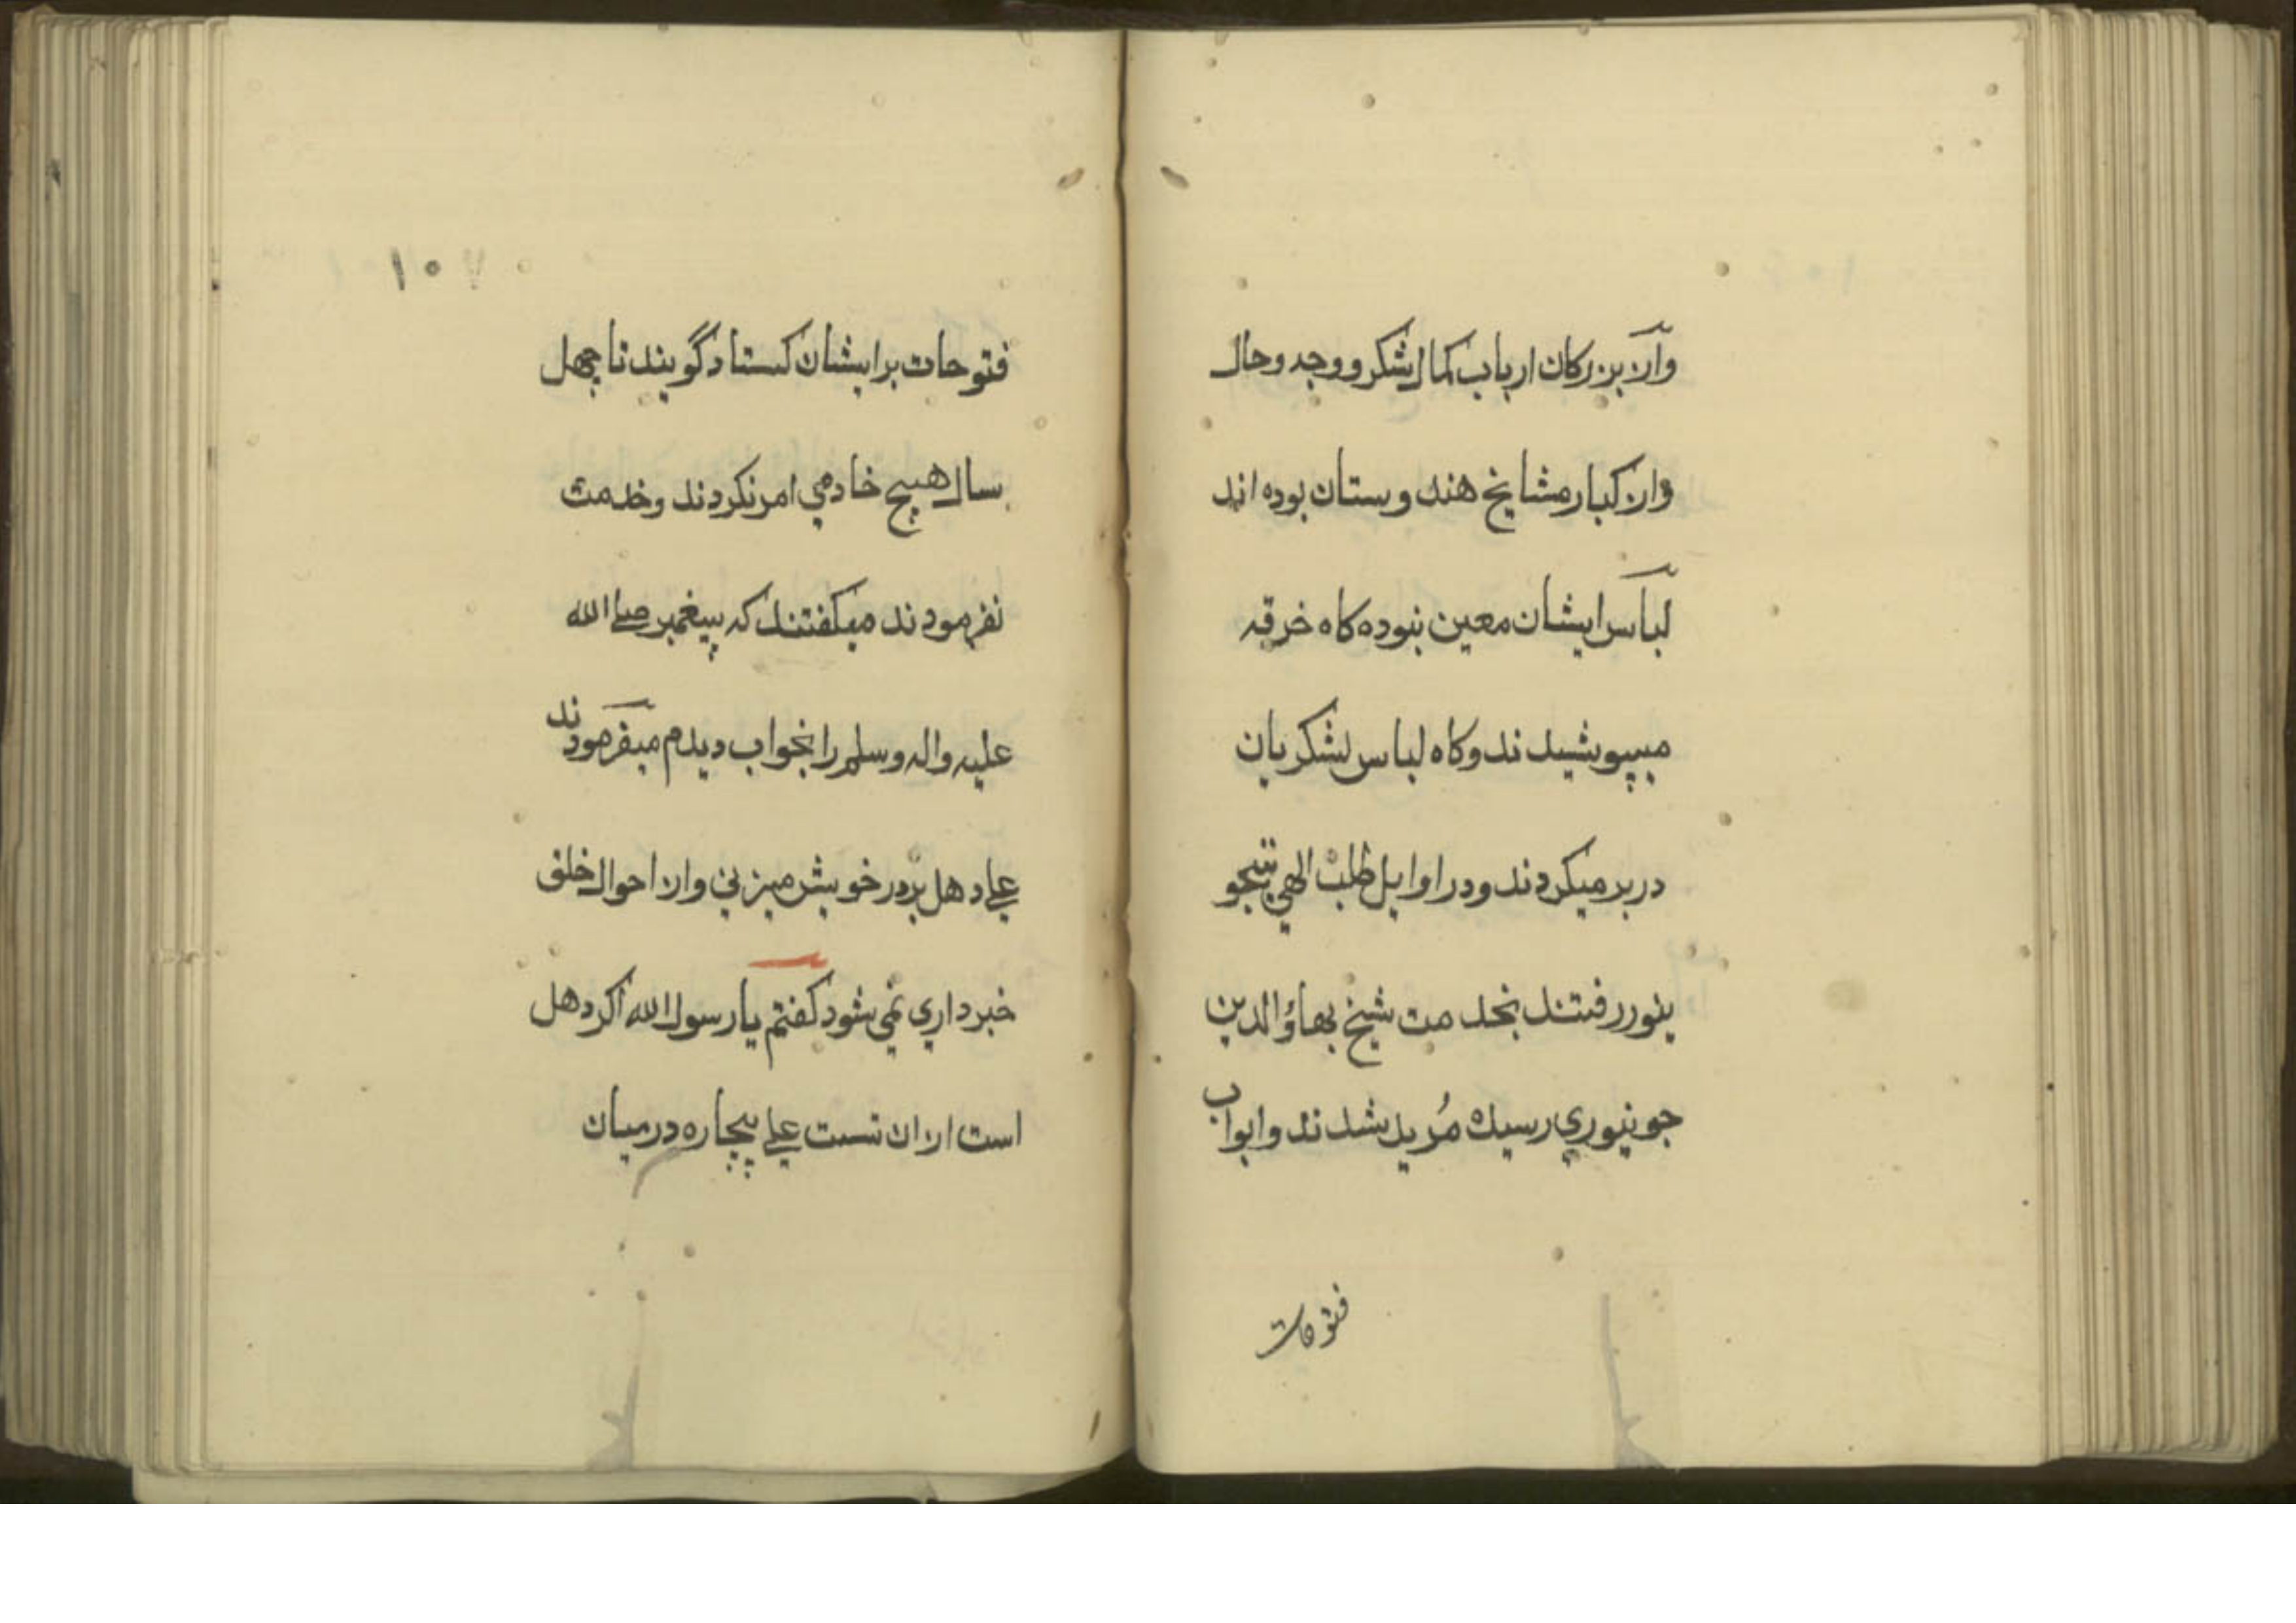 وازبزرکان ارباب کمال شکر و وجد و حال
واز کبار مشایخ هندوستان بوده اند
لباس ایشان معین نبوده کاه خرقه
میپوشیدند و کاه لباس لشکریان
دربر میکردند و در اوایل طلب الهی بتجو
ینور رفتند بخدمت شیخ بهاؤالدین
جونپوری رسیده مُرید شدند و ابواب
فتوحات
۱۰۷
فتوحات بر ایشان کستاد گویند تا چهل
سال هیچ خادمی امر نکردند و خدمت
نفرمودند میکفتند که پیغمبر صلی الله
علیه واله وسلم را بخواب دیدم میفرمودند
علی دهل بردر خویش میزنی واز احوال خلق
خبرداری نمی شود کفتم یا رسول الله اکر دهل
است از ان تست علی بیچاره درمیان